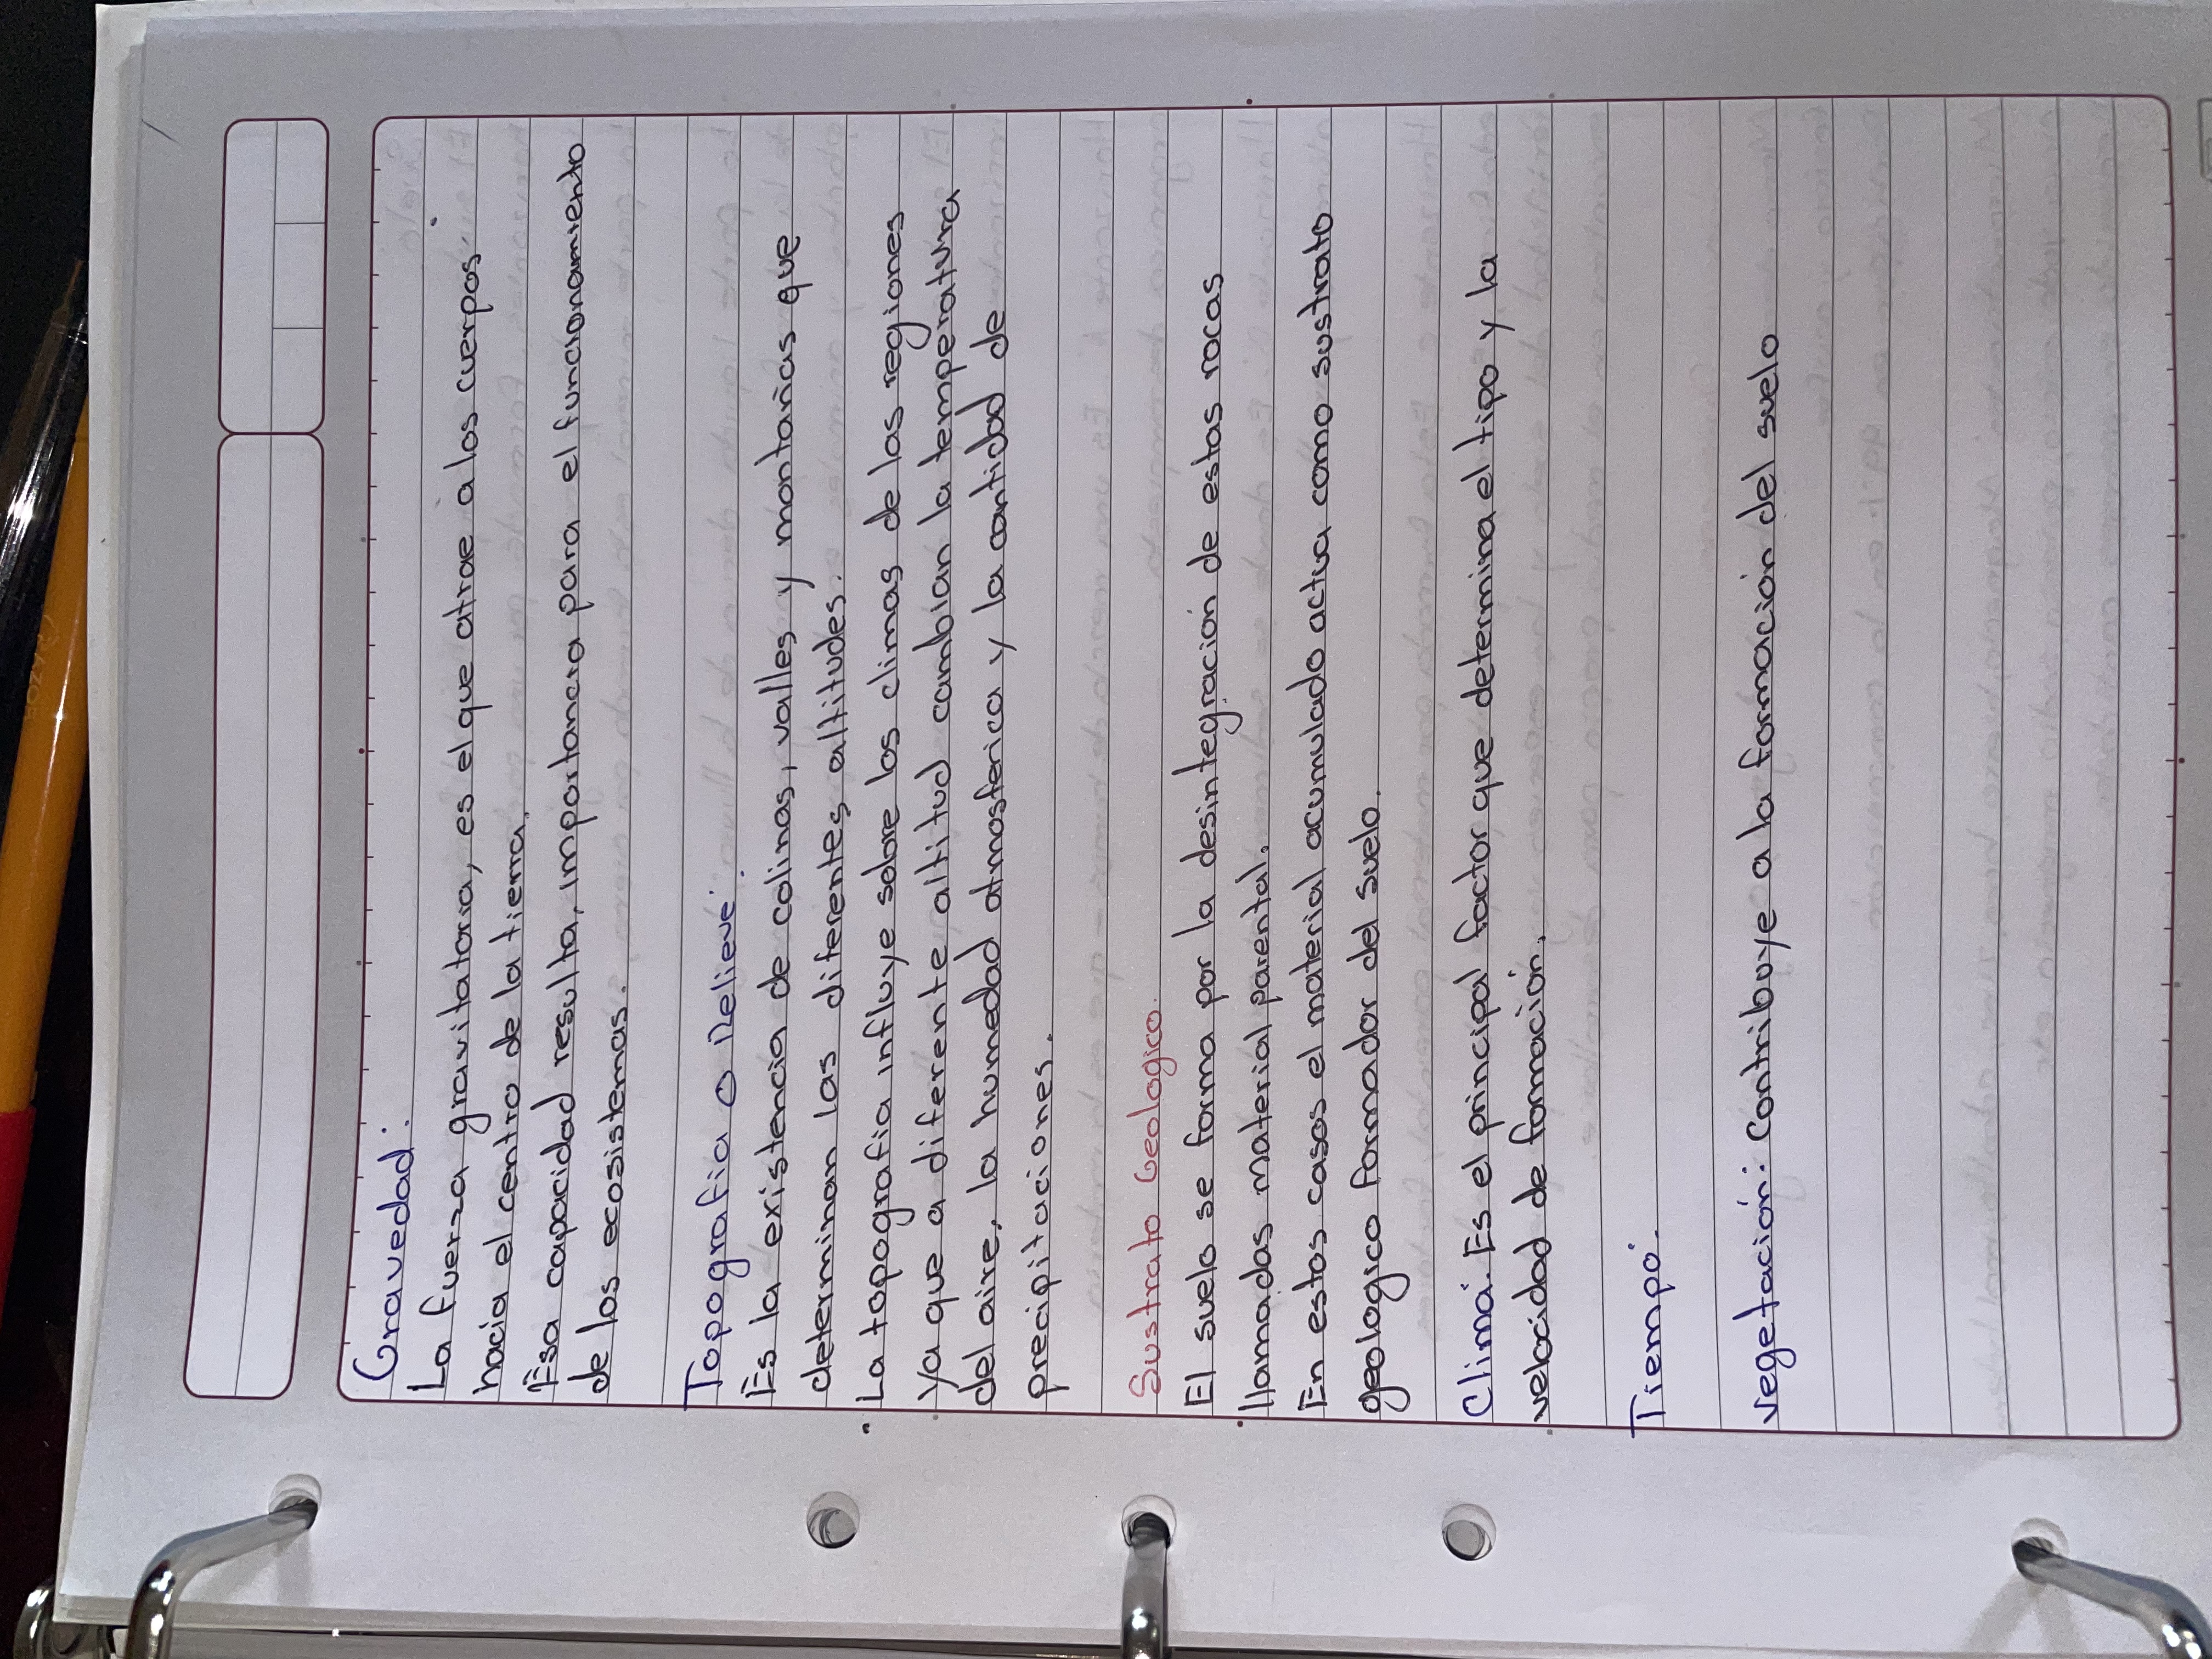 Gravedad:
La fuerza gravitatoria, es el que atrae a los cuerpos
hacia el centro de la tierra.
Esa capacidad resulta, importancia para el funcionamiento
de los ecosistemas.
Topografia o Relieve:
Es la existencia de colinas, valles y montañas que
determinan las diferentes altitudes.
La topografia influye sobre los climas de las regiones
Ya que a diferente altitud cambian la temperatura
del aire, la humedad atmosferica y la cantidad de
precipitaciones.
Sustrato Geologico.
El suelo se forma por la desintegración de estas rocas
llamadas material parental.
En estos casos el material acumulado actua como sustrato
geologico formador del suelo.
Clima: Es el principal factor que determina el tipo y la
velocidad de formación.
Tiempo:
Vegetación: Contribuye a la formación del suelo